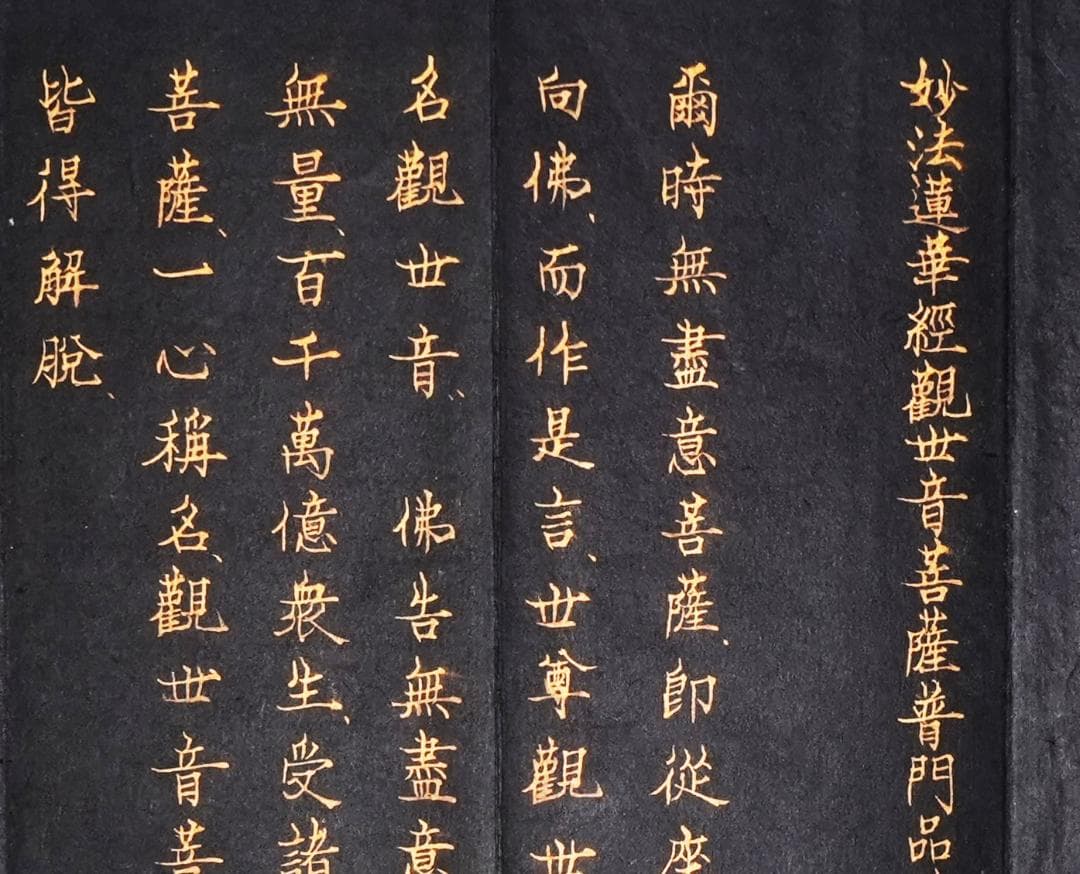 妙法蓮華經觀世音菩薩普門品
爾時無盡意菩薩、即從座
向佛、而作是言、世尊觀世
名觀世音、佛告無盡意
無量、百千萬億衆生、受諸
菩薩、一心稱名、觀世音菩
皆得解脫、